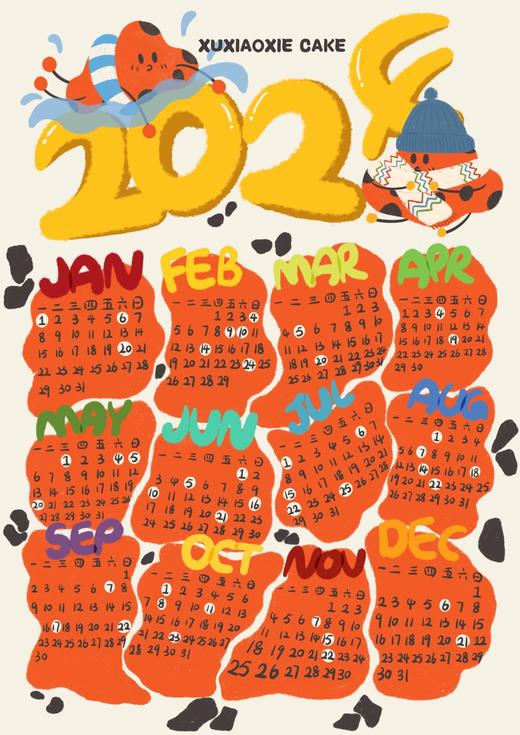 XUXIAOXIE CAKE
2024
JAN
一 二 三 四 五 六 日
1 2 3 4 5 6 7
8 9 10 11 12 13 14
15 16 17 18 19 20 21
22 23 24 25 26 27 28
29 30 31
FEB
一 二 三 四 五 六 日
1 2 3 4
5 6 7 8 9 10 11
12 13 14 15 16 17 18
19 20 21 22 23 24 25
26 27 28 29
MAR
一 二 三 四 五 六 日
1 2 3
4 5 6 7 8 9 10
11 12 13 14 15 16 17
18 19 20 21 22 23 24
25 26 27 28 29 30 31
APR
一 二 三 四 五 六 日
1 2 3 4 5 6 7
8 9 10 11 12 13 14
15 16 17 18 19 20 21
22 23 24 25 26 27 28
29 30
MAY
一 二 三 四 五 六 日
1 2 3 4 5
6 7 8 9 10 11 12
13 14 15 16 17 18 19
20 21 22 23 24 25 26
27 28 29 30 31
JUN
一 二 三 四 五 六 日
1 2
3 4 5 6 7 8 9
10 11 12 13 14 15 16
17 18 19 20 21 22 23
24 25 26 27 28 29 30
JUL
一 二 三 四 五 六 日
1 2 3 4 5 6 7
8 9 10 11 12 13 14
15 16 17 18 19 20 21
22 23 24 25 26 27 28
29 30 31
AUG
一 二 三 四 五 六 日
1 2 3 4
5 6 7 8 9 10 11
12 13 14 15 16 17 18
19 20 21 22 23 24 25
26 27 28 29 30 31
SEP
一 二 三 四 五 六 日
1
2 3 4 5 6 7 8
9 10 11 12 13 14 15
16 17 18 19 20 21 22
23 24 25 26 27 28 29
30
OCT
一 二 三 四 五 六 日
1 2 3 4 5 6
7 8 9 10 11 12 13
14 15 16 17 18 19 20
21 22 23 24 25 26 27
28 29 30 31
NOV
一 二 三 四 五 六 日
1 2 3
4 5 6 7 8 9 10
11 12 13 14 15 16 17
18 19 20 21 22 23 24
25 26 27 28 29 30
DEC
一 二 三 四 五 六 日
1
2 3 4 5 6 7 8
9 10 11 12 13 14 15
16 17 18 19 20 21 22
23 24 25 26 27 28 29
30 31